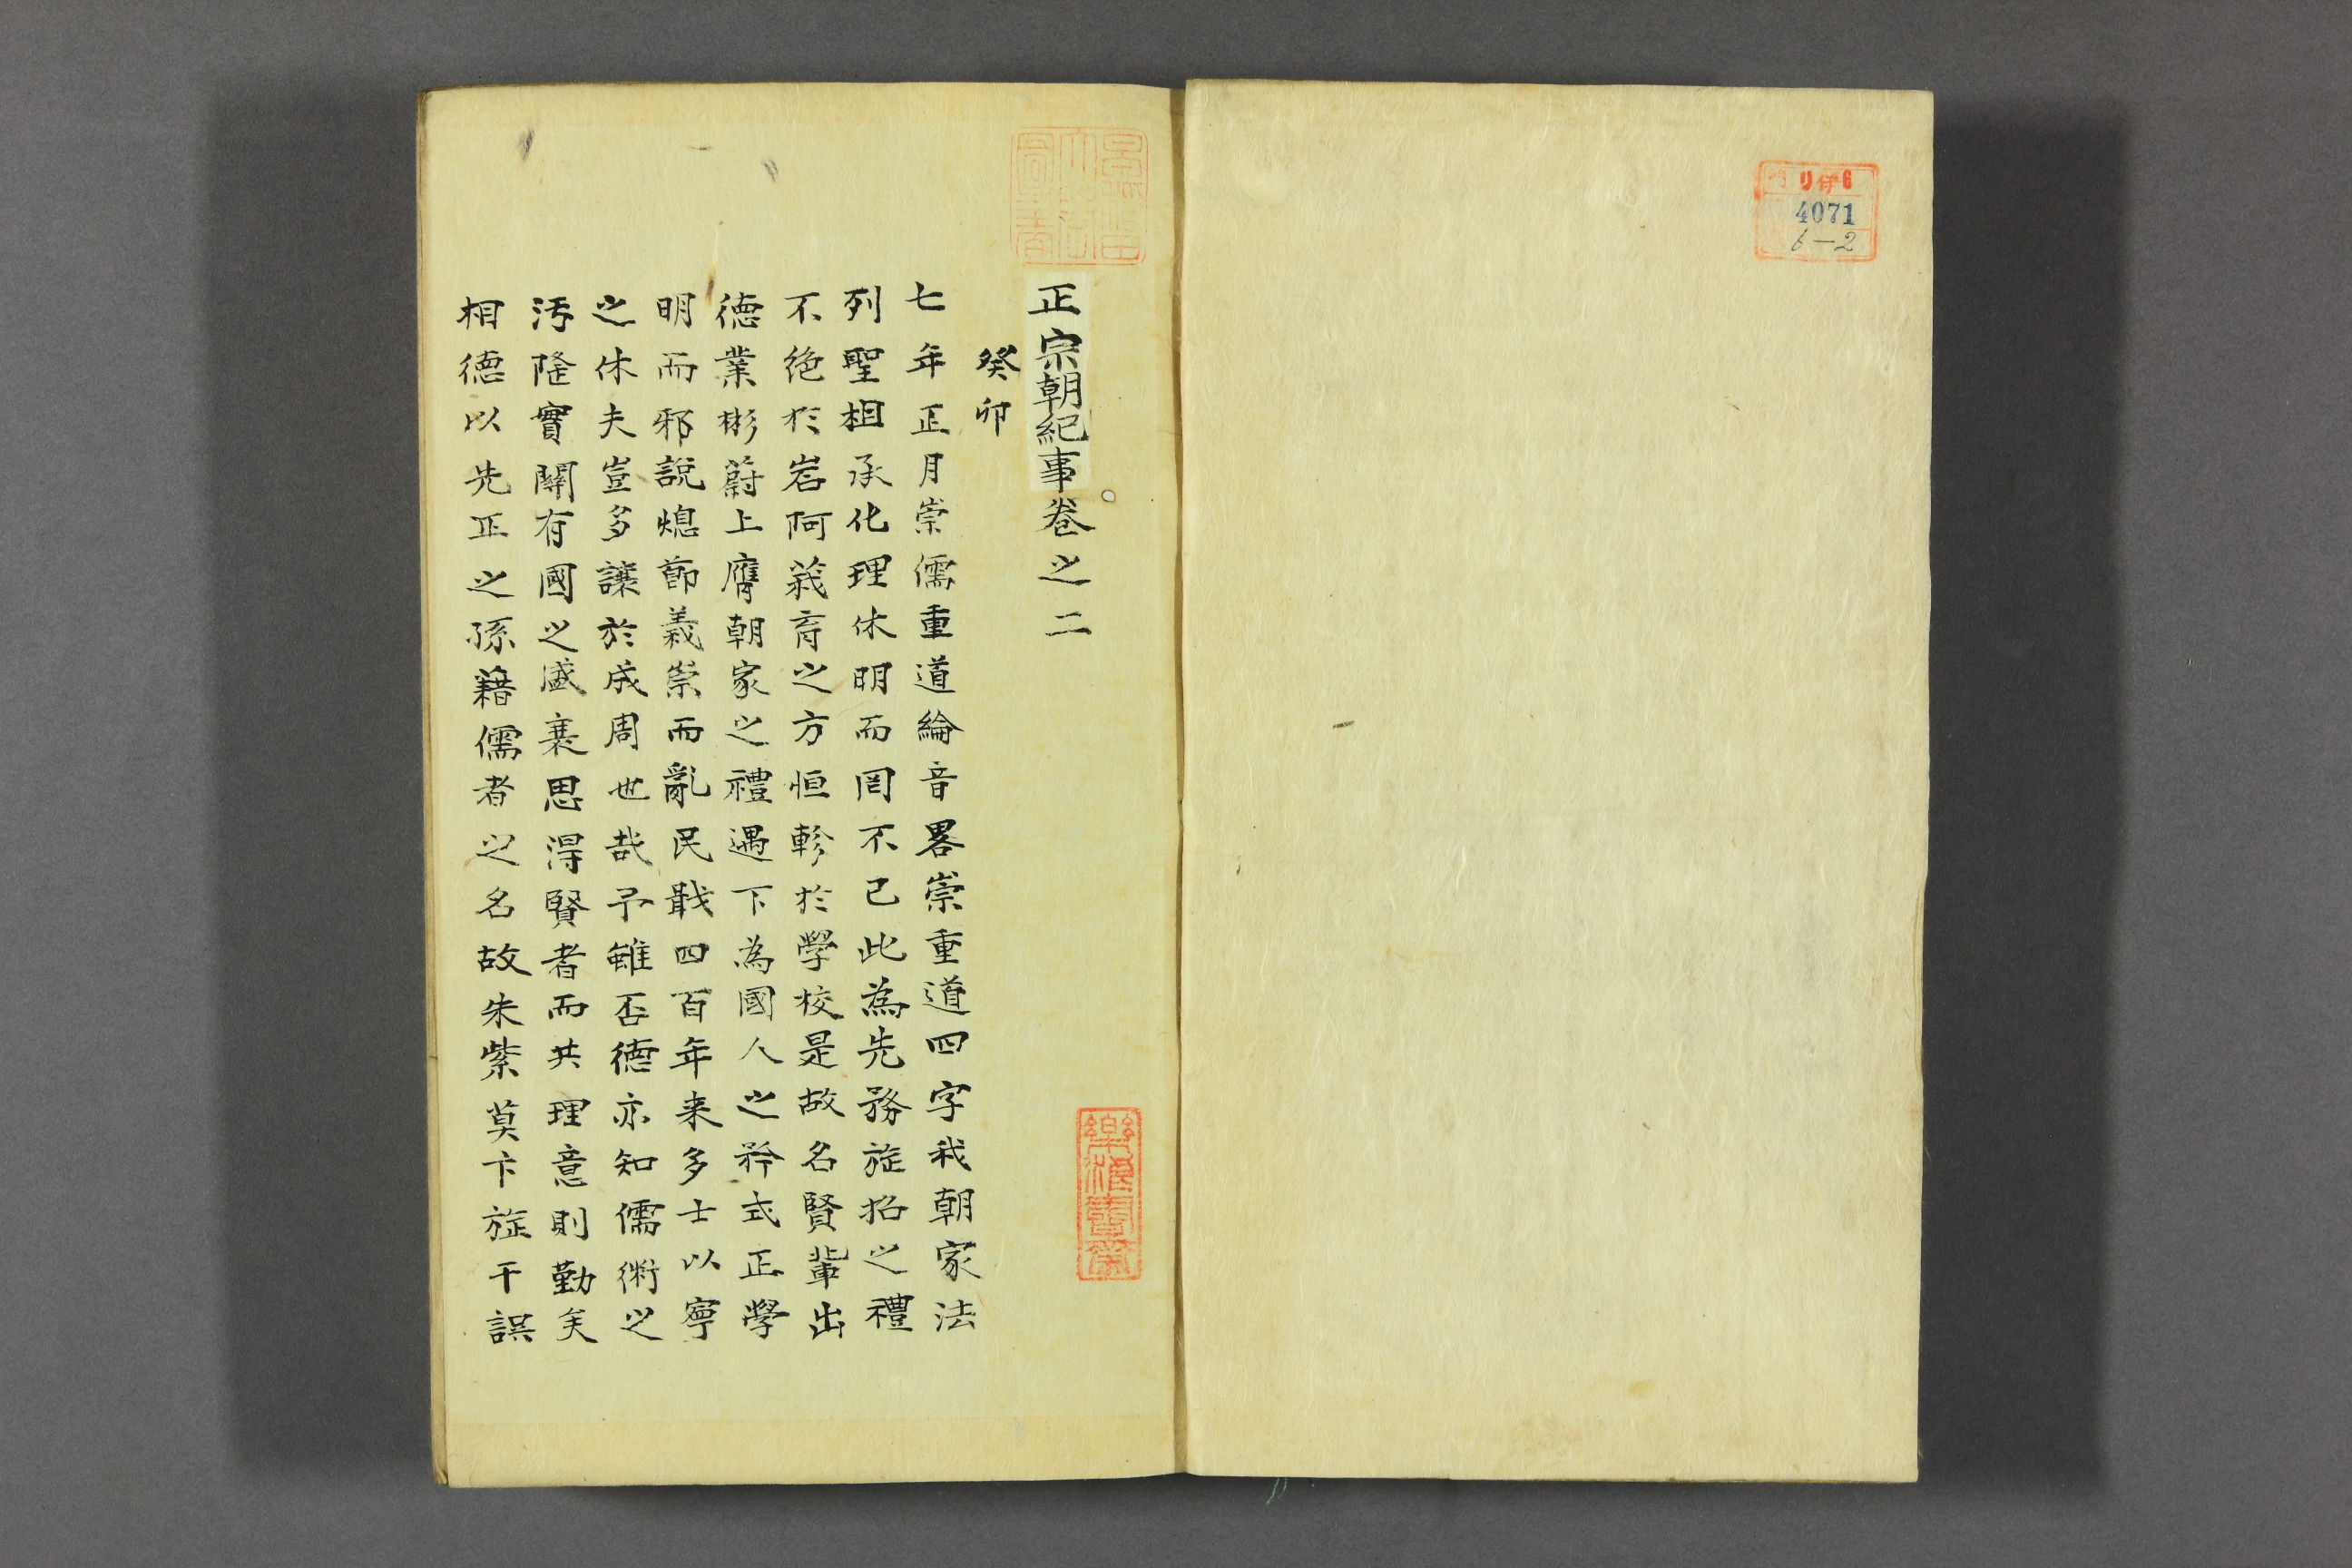 リ伊6
4071
6-2
正宗朝紀事卷之二
癸卯
七年正月崇儒重道綸音畧崇重道四字我朝家法
列聖相承化理休明而罔不已此為先務旋招之禮
不絶於岩阿義育之方恒軫於學校是故名賢輩出
德業彬蔚上膺朝家之禮遇下為國人之矜式正學
明而邪說熄節義崇而亂民戢四百年来多士以寧
之休夫豈多讓於成周世哉予雖否德亦知儒術之
汚隆實關有國之盛衰思得賢者而共理意則勤矣
相德以先正之孫藉儒者之名故朱紫莫卞旋干誤